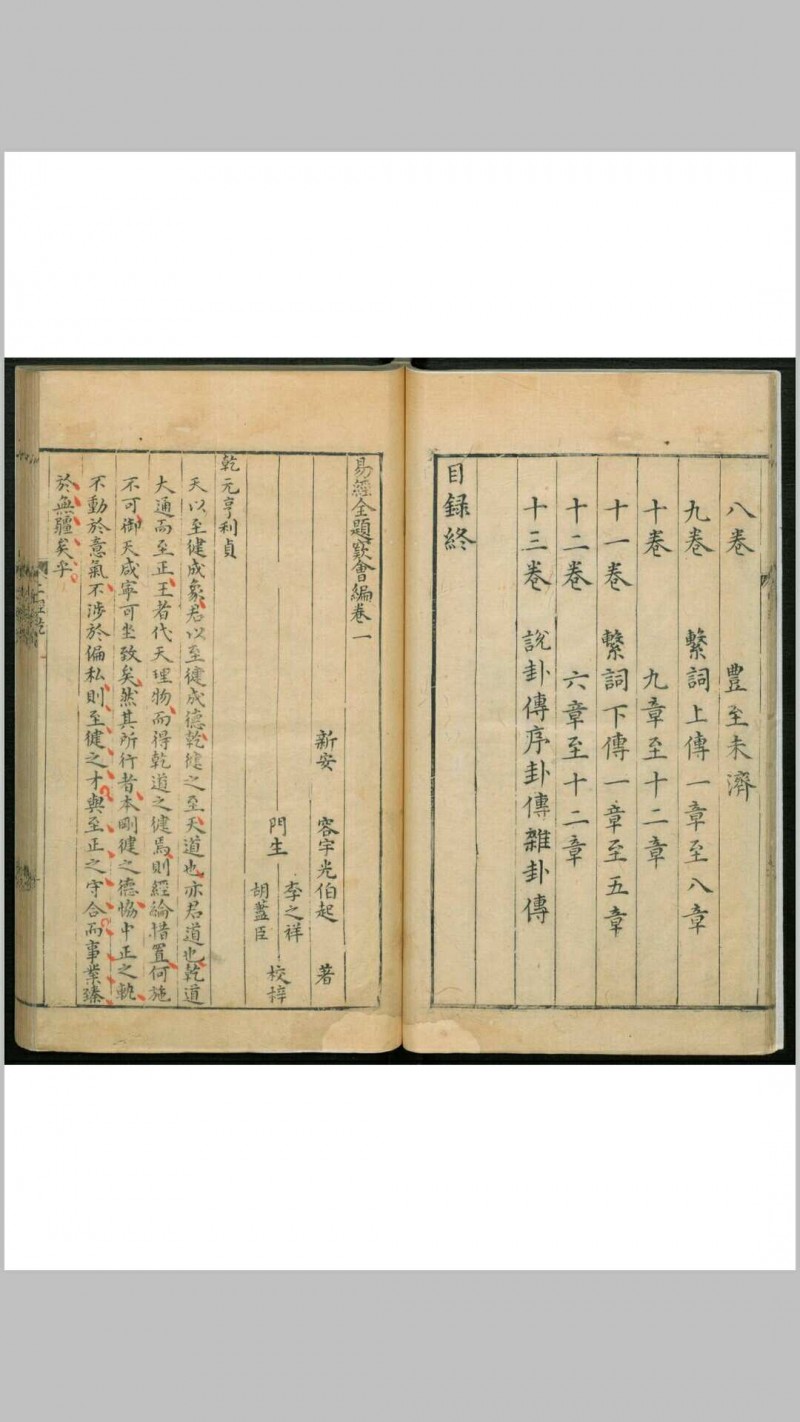 八卷 豐至未濟
九卷 繫詞上傳一章至八章
十卷 九章至十二章
十一卷 繫詞下傳一章至五章
十二卷 六章至十二章
十三卷 說卦傳序卦傳雜卦傳
目録終
易經全題竅會編卷一
新安 容宇光伯起 著
門生 李之祥 校梓
胡藎臣
乾元亨利貞
天以至健成象君以至健成德乾健之至天道也亦君道也乾道
大通而至正王者代天理物而得乾道之健焉則經論措置何施
不可御天咸寧可坐致矣然其所行者本剛健之德恊中正之軌
不動於意氣不涉於偏私則至健之才與至正之守合而事業臻
於無疆矣乎